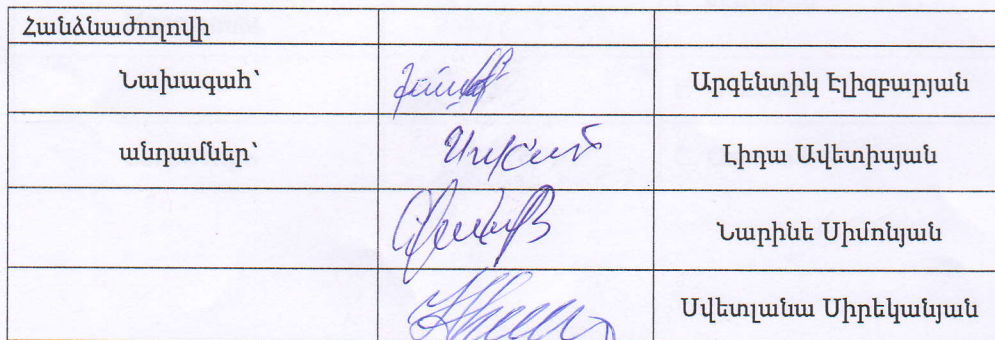 Հանձնաժողովի
Նախագահ՝ Արգենտիկ Էլիզբարյան
անդամներ՝ Լիդա Ավետիսյան
Նարինե Սիմոնյան
Սվետլանա Սիրեկանյան